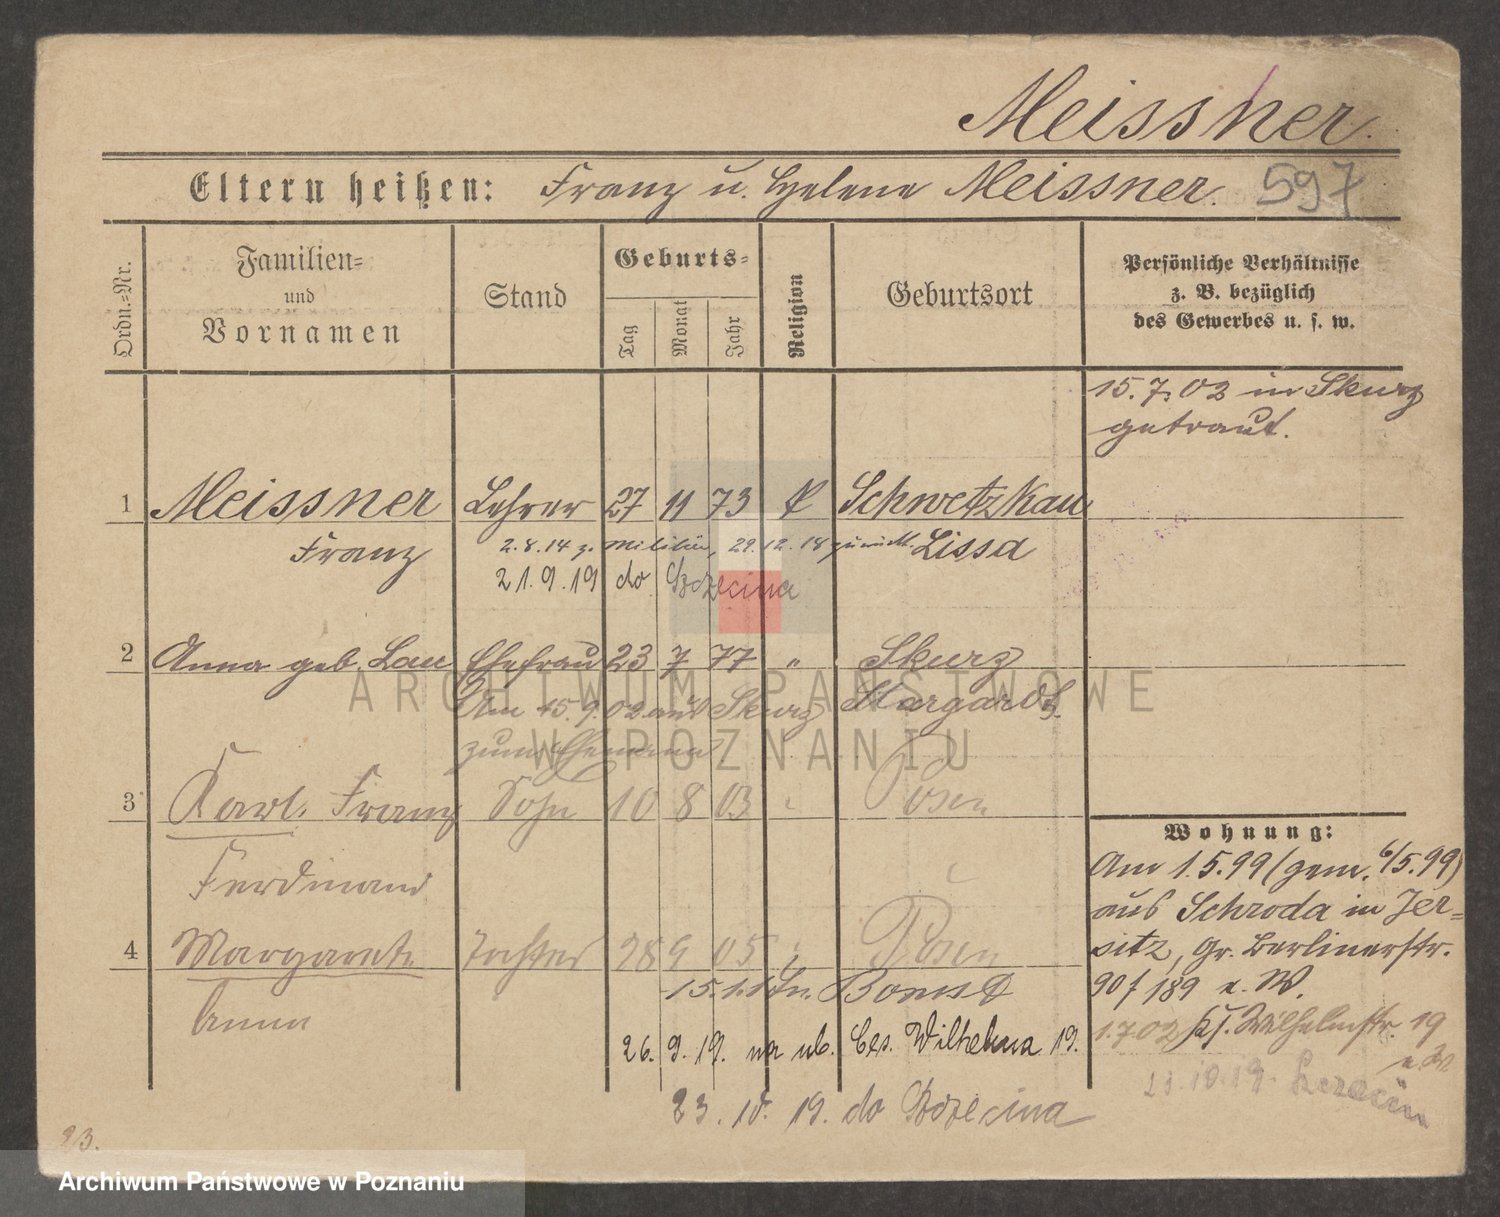 Meissner.
Eltern heißen: Franz u. Helene Meissner. 597
Ordn.=Nr.
Familien=
und
Vornamen
Stand
Geburts=
Tag
Monat
Jahr
Religion
Geburtsort
Persönliche Verhältnisse
z. B. bezüglich
des Gewerbes u. s. w.
15.7.02 in Skurz
getraut.
1 Meissner Lehrer 27 11 73 k Schwetzkau
Franz 2.8.14 z. Militär, 29.12.18 zurück. Lissa
21.9.19 do Szczecina
2 Anna geb. Lau Ehefrau 23 7 77 " Skurz
Am 15.9.02 aus Skurz Stargard
zum Ehemann
3 Karl. Franz Sohn 10 8 03 Posen
Ferdinand
4 Margarete Tochter 28 9 05 Posen
Anna Bomst
26. 9. 19. na ul. Ces. Wilhelma 19.
23. 10. 19. do Szczecina
Wohnung:
Am 1.5.99 (gem. 6/5.99)
aus Schroda in Jer=
sitz, Gr. Berlinerstr.
90 / 189 e. W.
1.7.02 Wilhelmstr. 19
e. W
23.10.19.
23.
ARCHIWUM PAŃSTWOWE
W POZNANIU
Archiwum Państwowe w Poznaniu